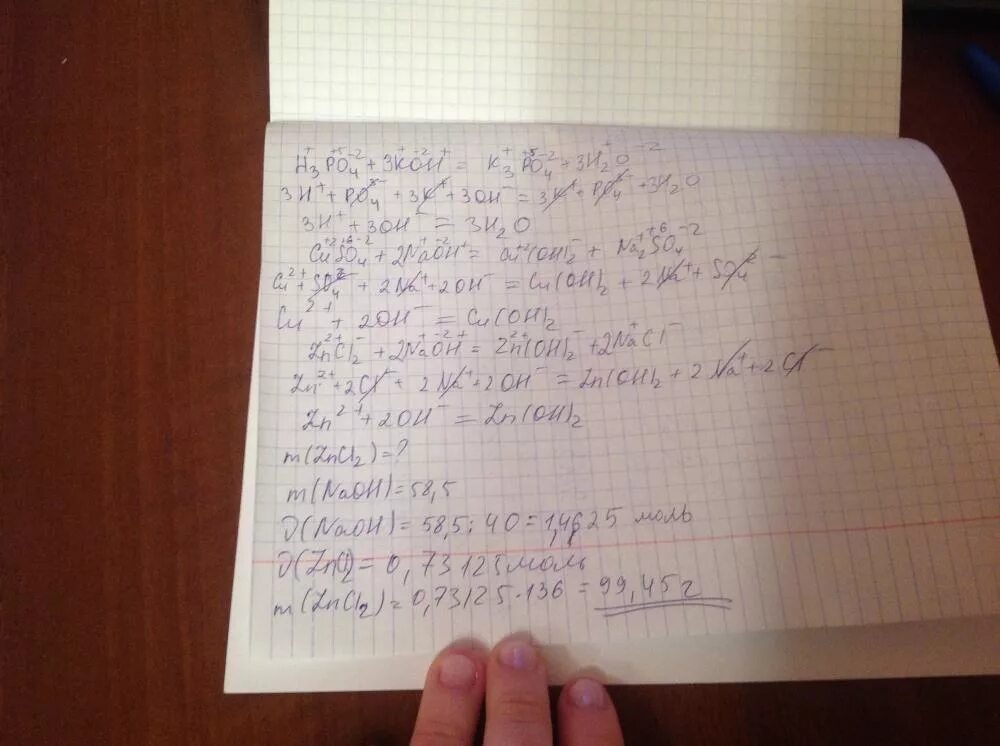 H₃⁺P⁺⁵O₄⁻² + 3K⁺O⁻²H⁺ = K₃⁺P⁺⁵O₄⁻² + 3H₂⁺O⁻²
3H⁺ + PO₄³⁻ + 3K⁺ + 3OH⁻ = 3K⁺ + PO₄³⁻ + 3H₂O
3H⁺ + 3OH⁻ = 3H₂O
Cu⁺²S⁺⁶O₄⁻² + 2Na⁺O⁻²H⁺ = Cu⁺²(OH)₂⁻ + Na₂⁺S⁺⁶O₄⁻²
Cu²⁺ + SO₄²⁻ + 2Na⁺ + 2OH⁻ = Cu(OH)₂ + 2Na⁺ + SO₄²⁻
Cu²⁺ + 2OH⁻ = Cu(OH)₂
Zn²⁺Cl₂⁻ + 2Na⁺O⁻²H⁺ = Zn²⁺(OH)₂⁻ + 2Na⁺Cl⁻
Zn²⁺ + 2Cl⁻ + 2Na⁺ + 2OH⁻ = Zn(OH)₂ + 2Na⁺ + 2Cl⁻
Zn²⁺ + 2OH⁻ = Zn(OH)₂
m(ZnCl₂) = ?
m(NaOH) = 58,5
ν(NaOH) = 58,5 : 40 = 1,4625 моль
ν(ZnCl₂ = 0,73125 моль
m(ZnCl₂) = 0,73125 · 136 = 99,45 г